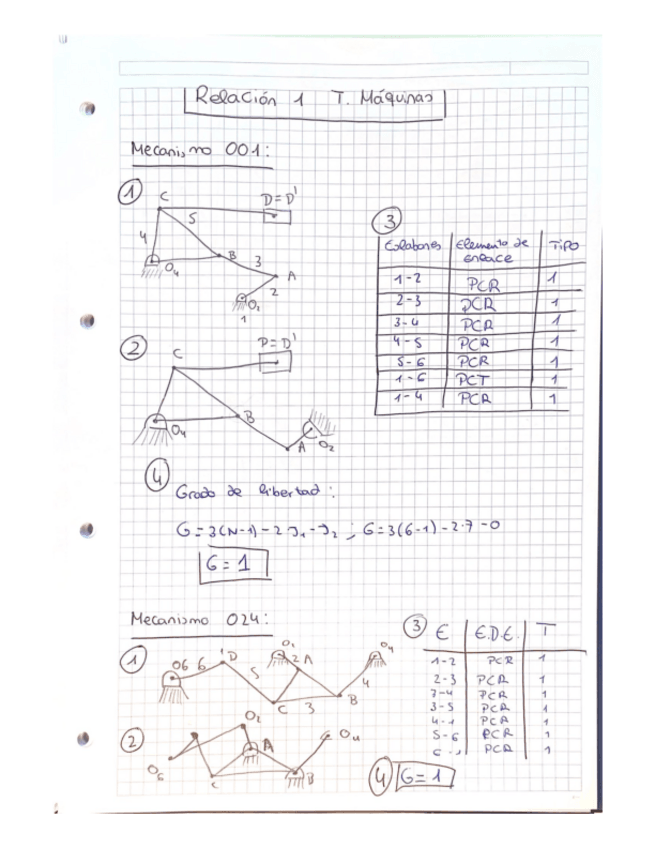 Relación 1 T. Máquinas
Mecanismo 001:
1
C
D=D'
5
4
B
3
A
O4
2
O2
1
3
Eslabones Elemento de enlace TIPO
1-2 PCR 1
2-3 PCR 1
3-4 PCR 1
4-5 PCR 1
5-6 PCR 1
1-6 PCT 1
1-4 PCR 1
2
C
D=D'
B
O4
A
O2
4
Grado de libertad:
G=3(N-1)-2·J1-J2 ; G=3(6-1)-2·7-0
G=1
Mecanismo 024:
1
O6 6 D
5
O2
2 A
O4
4
C 3 B
3
E E.D.E. T
1-2 PCR 1
2-3 PCR 1
3-4 PCR 1
3-5 PCR 1
4-1 PCR 1
5-6 PCR 1
6-1 PCR 1
2
O2
A
O4
O6
C
B
4 G=1